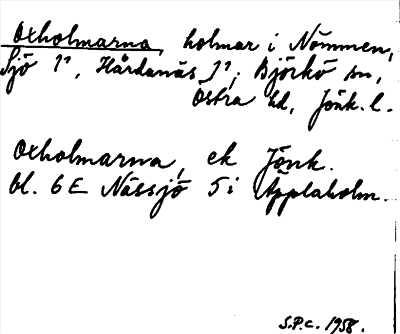 Oxholmarna, holmar i Nömmen,
Sjö 1², Hårdanäs 1²; Björkö sn,
Östra hd, Jönk. l.
Oxholmarna, ek Jönk.
bl. 6E Nässjö 5i Äpplaholm.
S.P.c. 1958.